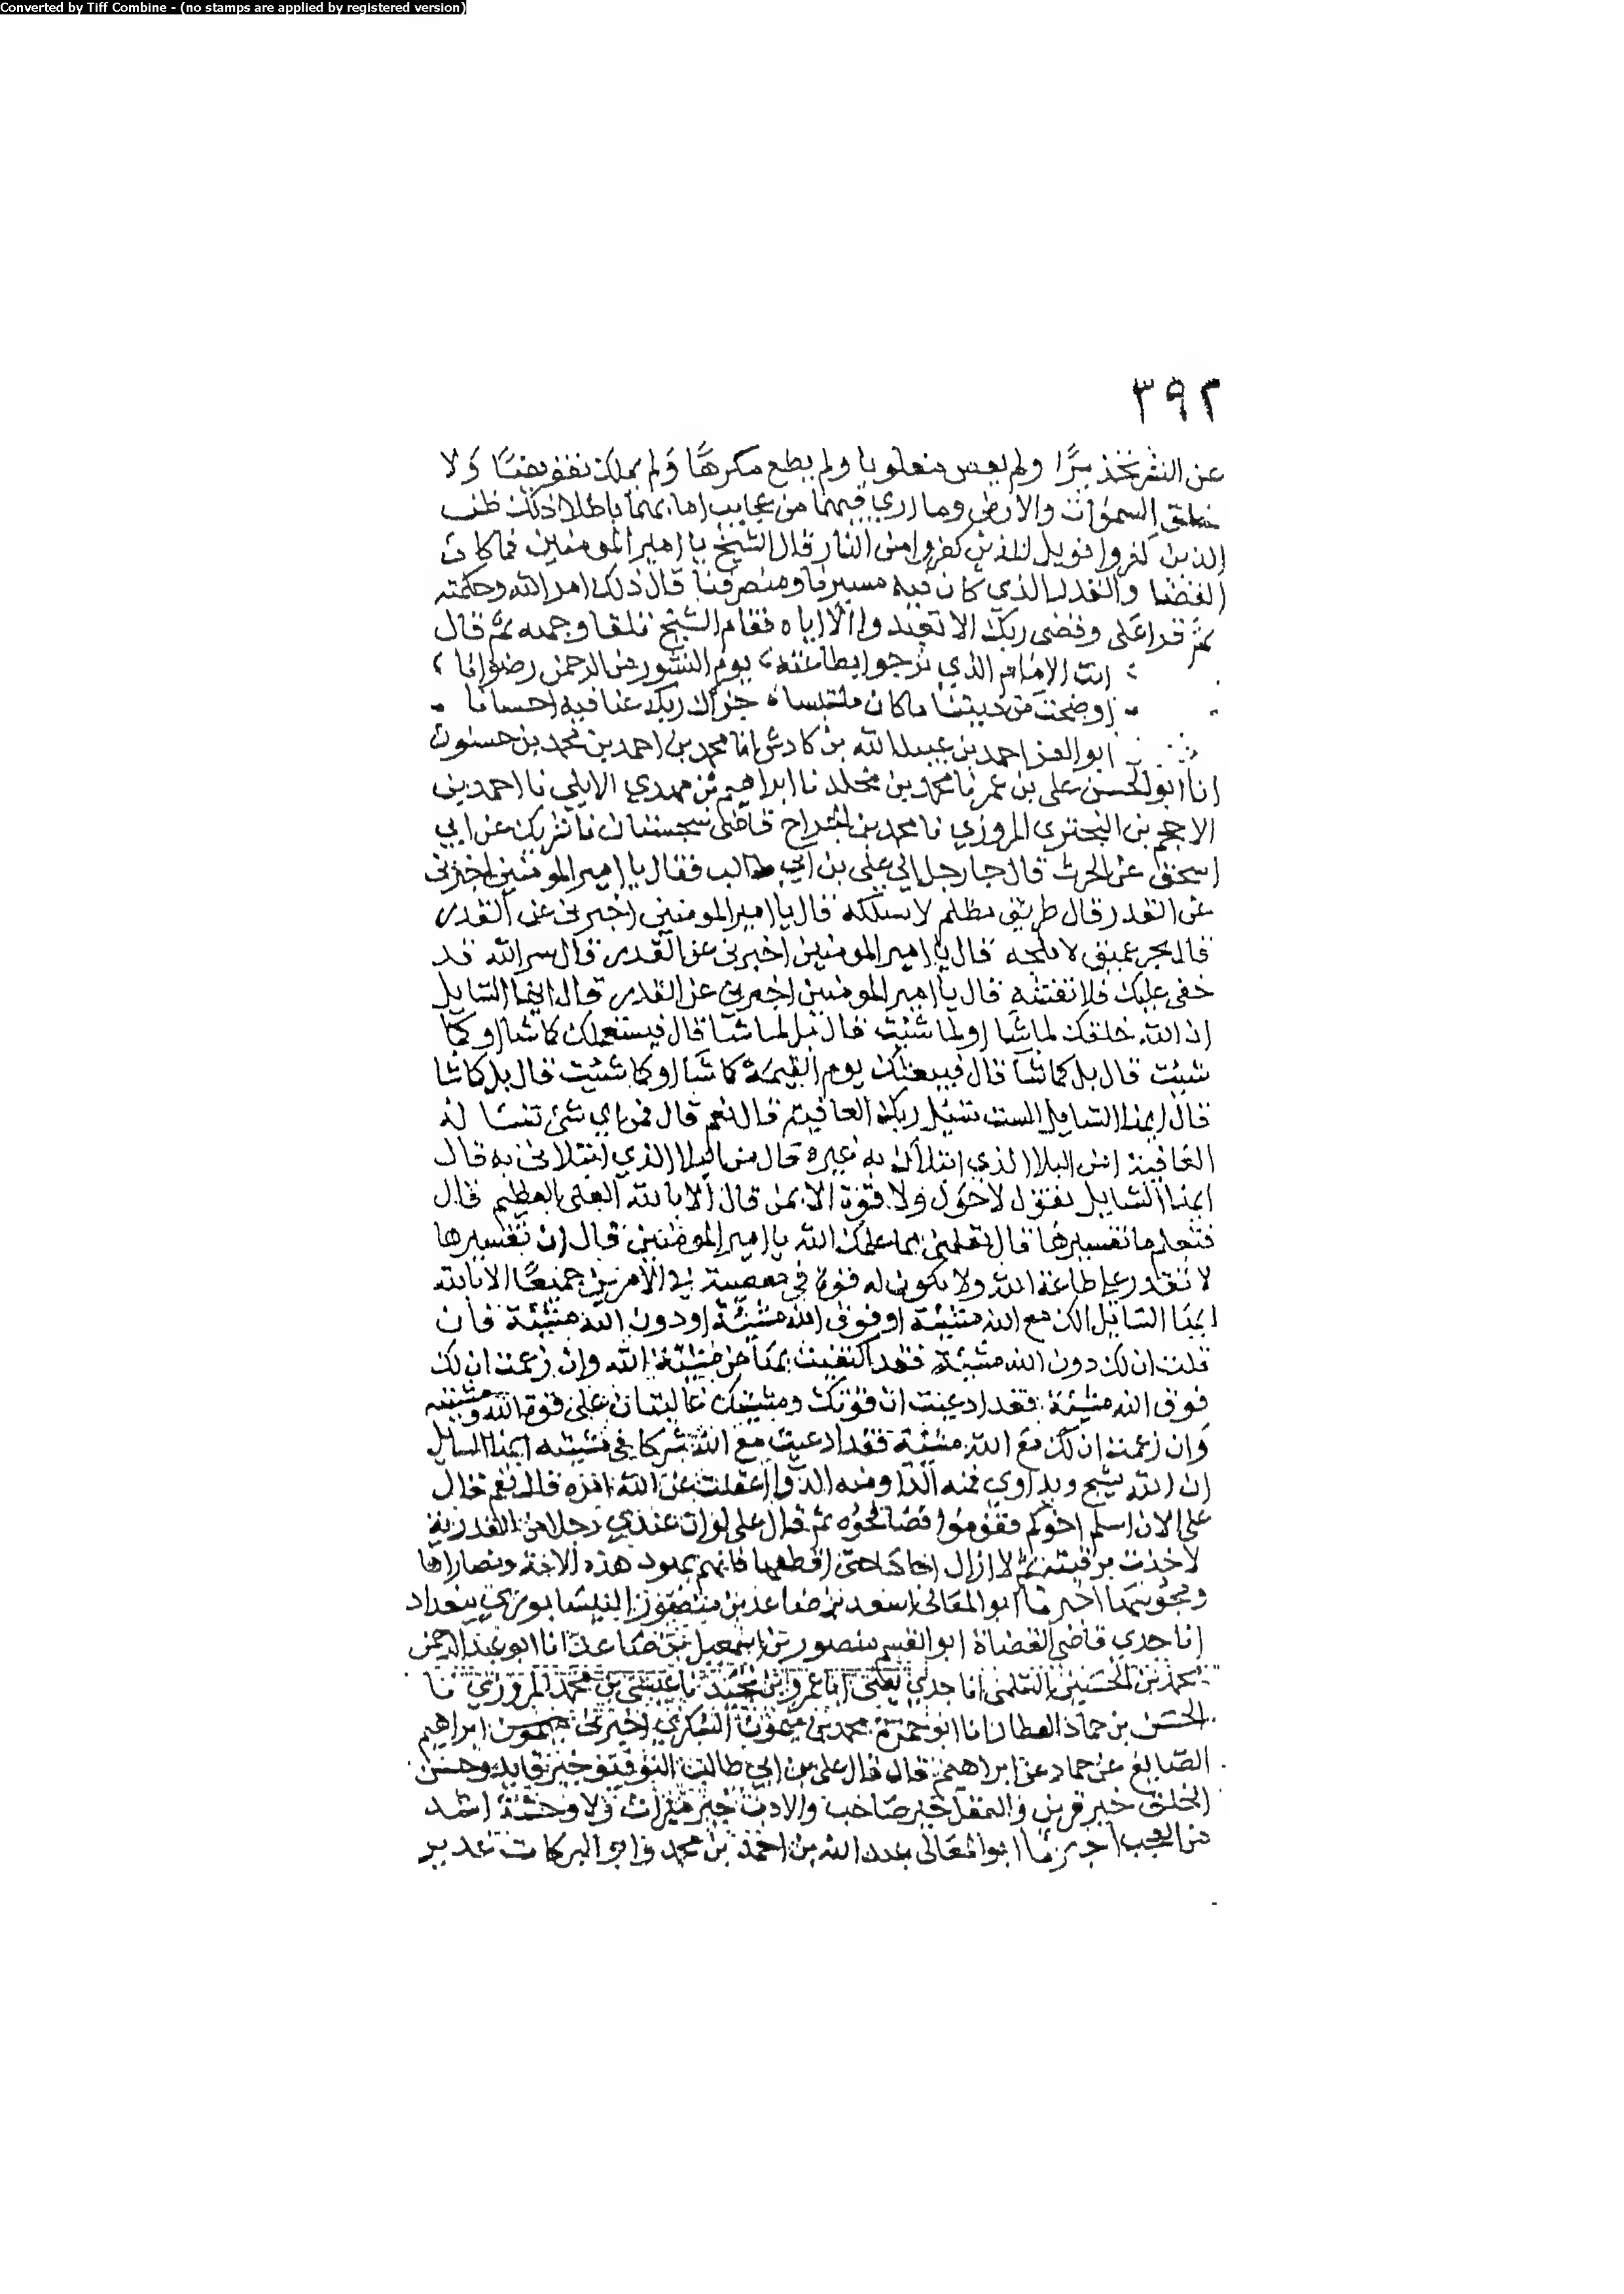 Converted by Tiff Combine - (no stamps are applied by registered version)
٣٩٢
عن الشر تحذيرا ولم يعص مغلوبا ولم يطع مكرها ولم يملك تفويضا ولا
خلق السموات والارض وما اري فيهما من عجايب اياتهما باطلا ذلك ظن
الذين كفروا فويل للذين كفروا من النار قال الشيخ يا امير المومنين فما كان
القضا والقدر الذي كان فيه مسيرنا ومنصرفنا قال ذلك امر الله وحكمته
ثم قرا على وقضى ربك الا تعبدوا الا اياه فقام الشيخ تلقا وجهه ثم قال
انت الامام الذي نرجوا بطاعته يوم النشور من الرحمن رضوانا
اوضحت من ديننا ما كان ملتبسا جزاك ربك عنا فيه احسانا
ابو العز احمد بن عبيد الله بن كادش انا محمد بن احمد بن محمد بن حسنون
انا ابو الحسن على بن عمر نا محمد بن مخلد نا ابراهيم بن مهدي الابلي نا احمد بن
الاحجم بن البختري المروزي نا محمد بن الجراح قاضى سجستان نا شريك عن ابي
اسحق عن الحرث قال جا رجل الى على بن ابي طالب فقال يا امير المومنين اخبرنى
عن القدر قال طريق مظلم لا تسلكه قال يا امير المومنين اخبرنى عن القدر
قال بحر عميق لا تلجه قال يا امير المومنين اخبرنى عن القدر قال سر الله قد
خفى عليك فلا تفتشه قال يا امير المومنين اخبرنى عن القدر قال ايها السايل
ان الله خلقك لما شا او لما شئت قال بل لما شا قال فيستعملك كما شا او كما
شئت قال بل كما شا قال فيبعثك يوم القيمة كما شا او كما شئت قال بل كما شا
قال ايها السايل الست تسئل ربك العافية قال نعم قال فمن اي شئ تسا له
العافية امن البلا الذي ابتلاك به غيره قال من البلا الذي ابتلانى به قال
ايها السايل تقول لا حول ولا قوة الا بمن قال الا بالله العلى العظيم قال
فتعلم ما تفسيرها قال تعلمنى مما علمك الله يا امير المومنين قال ان تفسيرها
لا تقدر على طاعة الله ولا يكون له قوة في معصية في الامرين جميعا الا بالله
ايها السايل الك مع الله مشيئة او فوق الله مشيئة او دون الله مشيئة فان
قلت ان لك دون الله مشيئة فقد اكتفيت بها عن مشيئة الله وان زعمت ان لك
فوق الله مشيئة فقد ادعيت ان قوتك ومشيتك غالبتان على قوة الله ومشيته
وان زعمت ان لك مع الله مشيئة فقد ادعيت مع الله شركا في مشيته ايها السايل
ان الله يشج ويداوي فمنه الدا ومنه الدوا اعقلت عن الله امره قال نعم قال
على الان اسلم اخوكم فقوموا فصافحوه ثم قال على لو ان عندي رجلا من القدرية
لاخذت برقبته ثم لا ازال اجاها حتى اقطعها فانهم يهود هذه الامة ونصاراها
ومجوسها اخبرنا ابو المعالى اسعد بن صاعد بن منصور النيسابوري ببغداد
انا جدي قاضي القضاة ابو القسم منصور بن اسمعيل بن صاعد انا ابو عبد الرحمن
محمد بن الحسين السلمى انا جدي يعنى ابا عمرو بن نجيد نا عيسى بن محمد المروزي نا
الحسن بن حماد العطار انا ابو حمزة محمد بن ميمون السكري اخبرنى ابراهيم
الصايغ عن حماد عن ابراهيم قال قال على بن ابي طالب التوفيق خير قايد وحسن
الخلق خير قرين والعقل خير صاحب والادب خير ميراث ولا وحشة اشد
من العجب اخبرنا ابو المعالى عبد الله بن احمد بن محمد وابو البركات